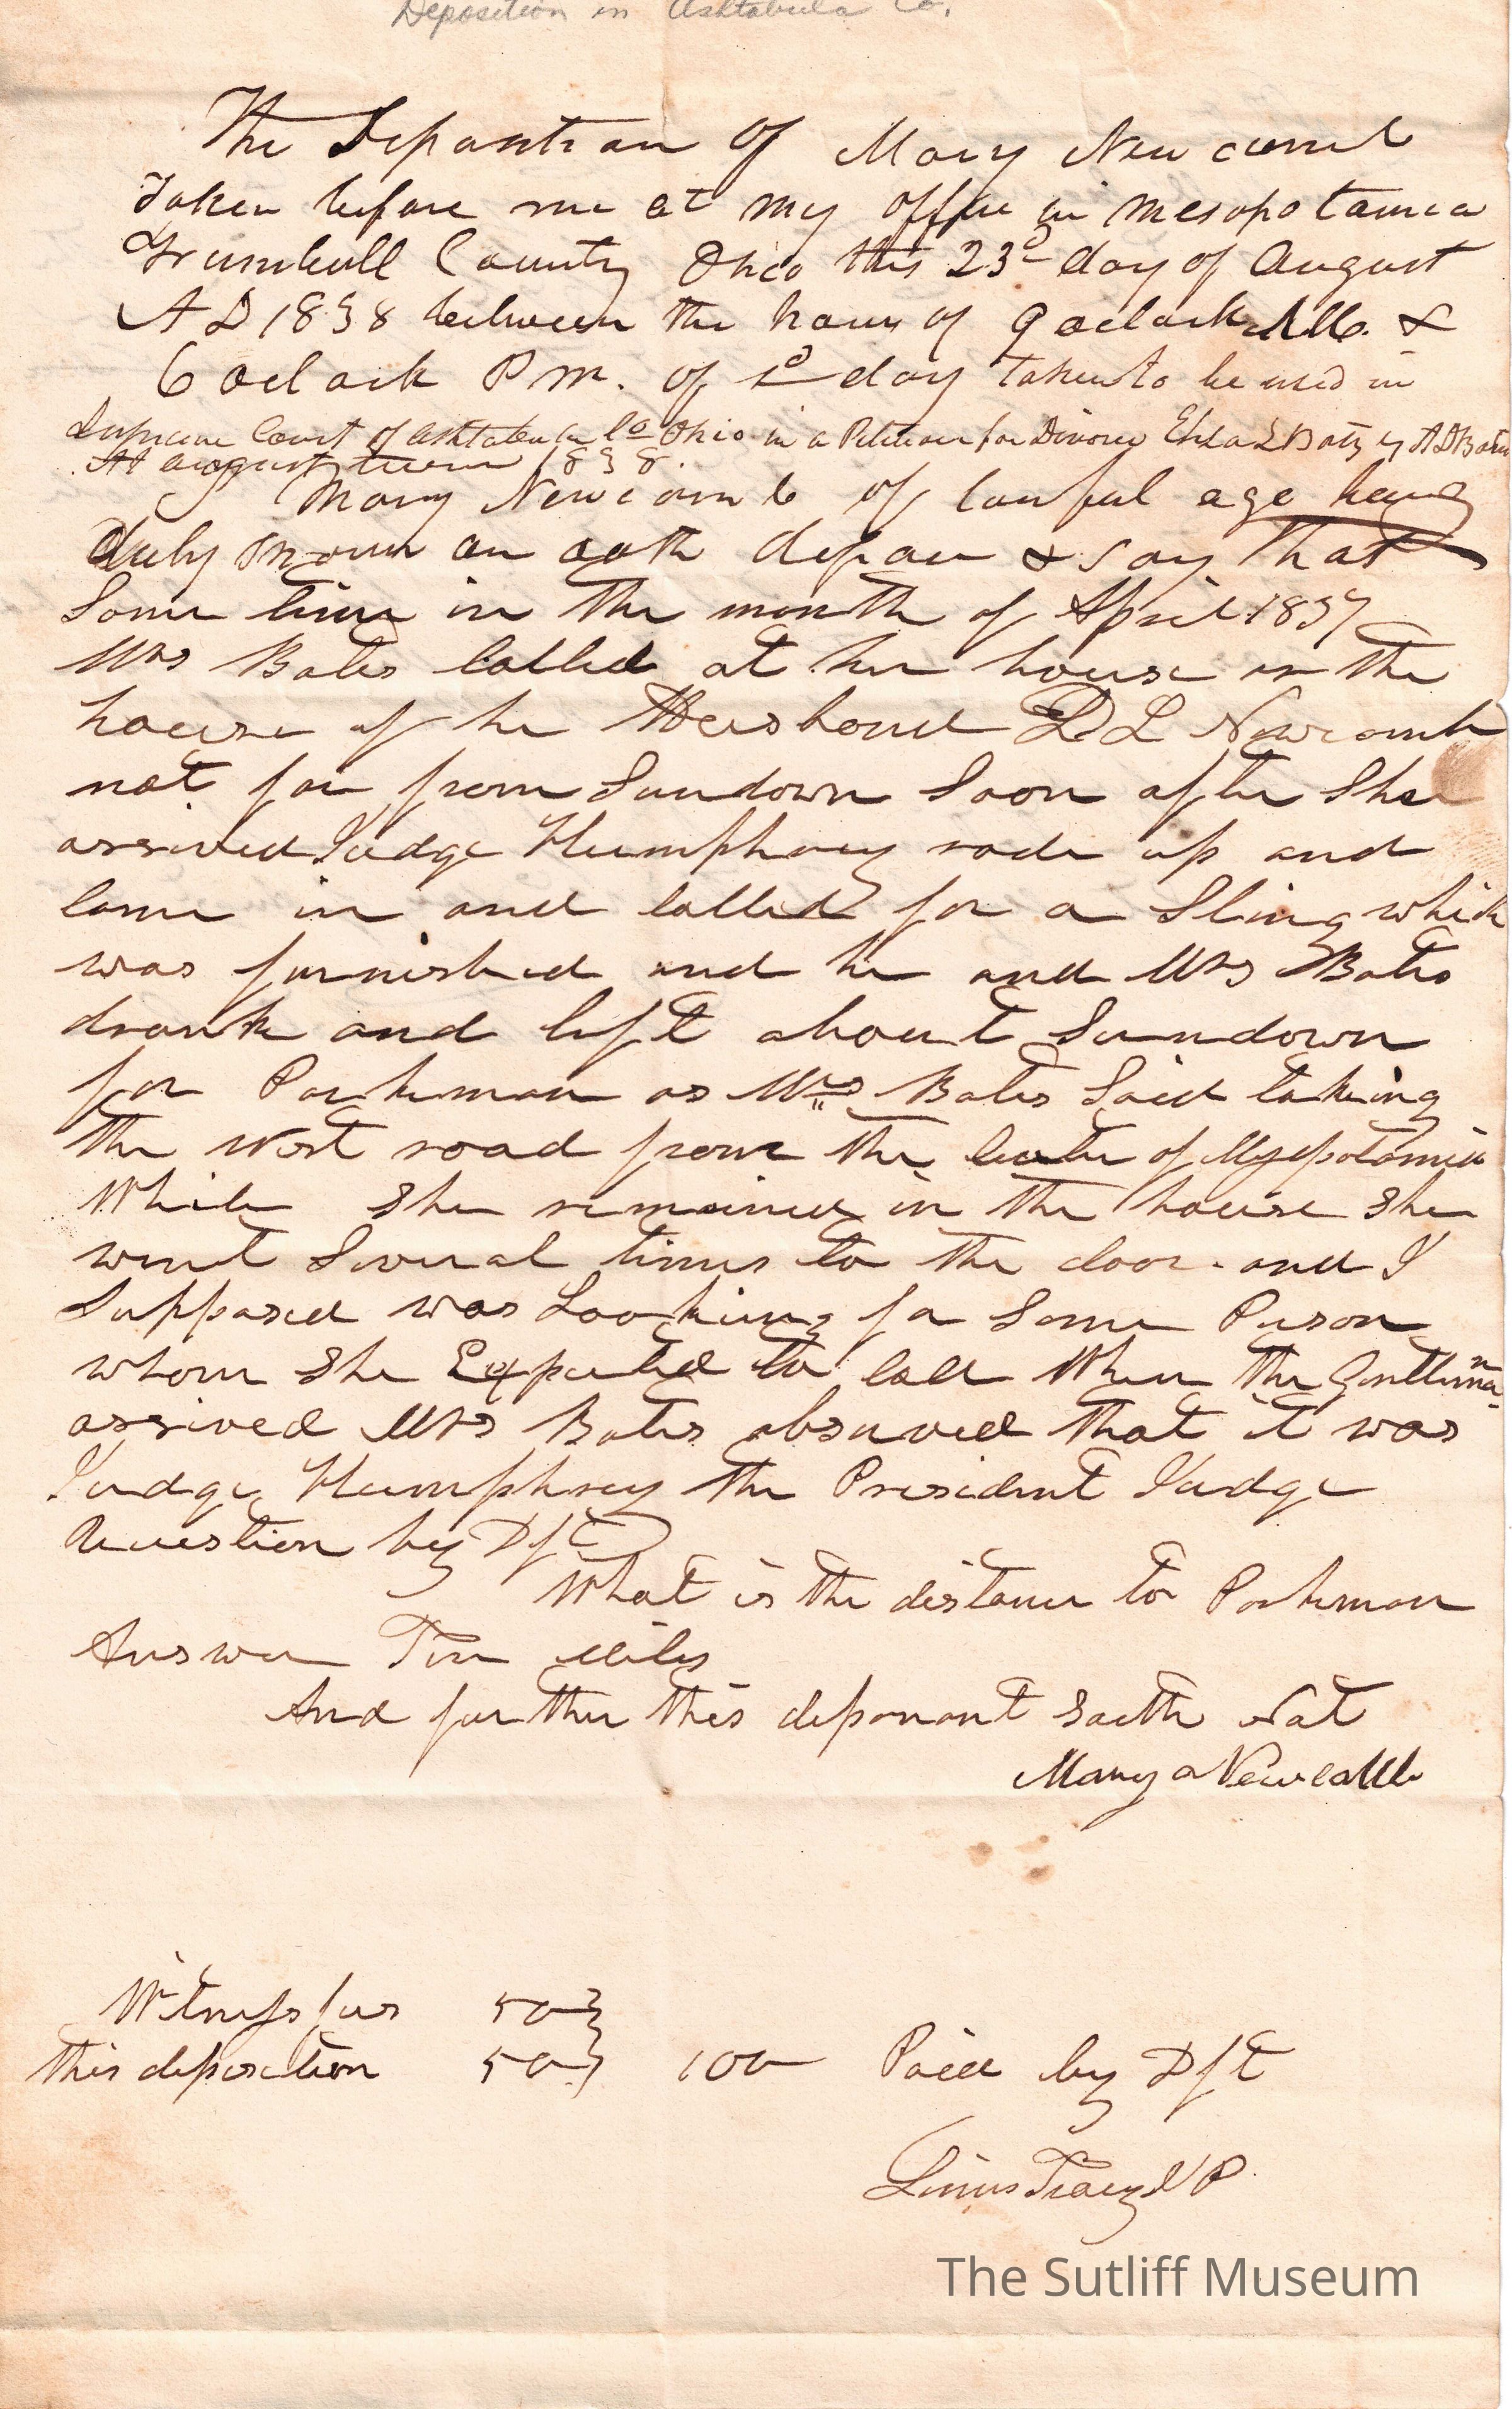 Deposition in Ashtabula Co.
The Deposition of Mary Newcomb
Taken before me at my office in Mesopotamia
Trumbull County Ohio this 23d day of August
A D 1838 between the hours of 9 oclock AM. &
6 oclock P m. of sd day Taken to be used in
Supreme Court of Ashtabula Co Ohio in a Petition for Divorce Eliza L Bates vs A D Bates
At august term 1838.
Mary Newcomb of lawful age being
duly sworn on oath depose & say That
Some time in the month of April 1837
Mrs Bates Called at her house or the
house of he Husband D L Newcomb
not far from Sundown Soon after She
arrived Judge Humphrey rode up and
Came in and Called for a Sling which
was furnished and he and Mrs Bates
drank and left about Sundown
for Parkman as Mrs Bates Said taking
the West road from the Center of Mesopotamia
While She remained in the house She
went Several times to the door. and I
Supposed was Looking for Some Person
whom She Expected to Call When the Gentleman
arrived Mrs Bates observed that it was
Judge Humphrey the President Judge
Question by Dft
What is the distance to Parkman
Answer Ten Miles
And further this deponant Saith Not
Mary a Newcomb
Witness fees 50
this deposition 50 100 Paid by Dft
Linus Tracy J P
The Sutliff Museum